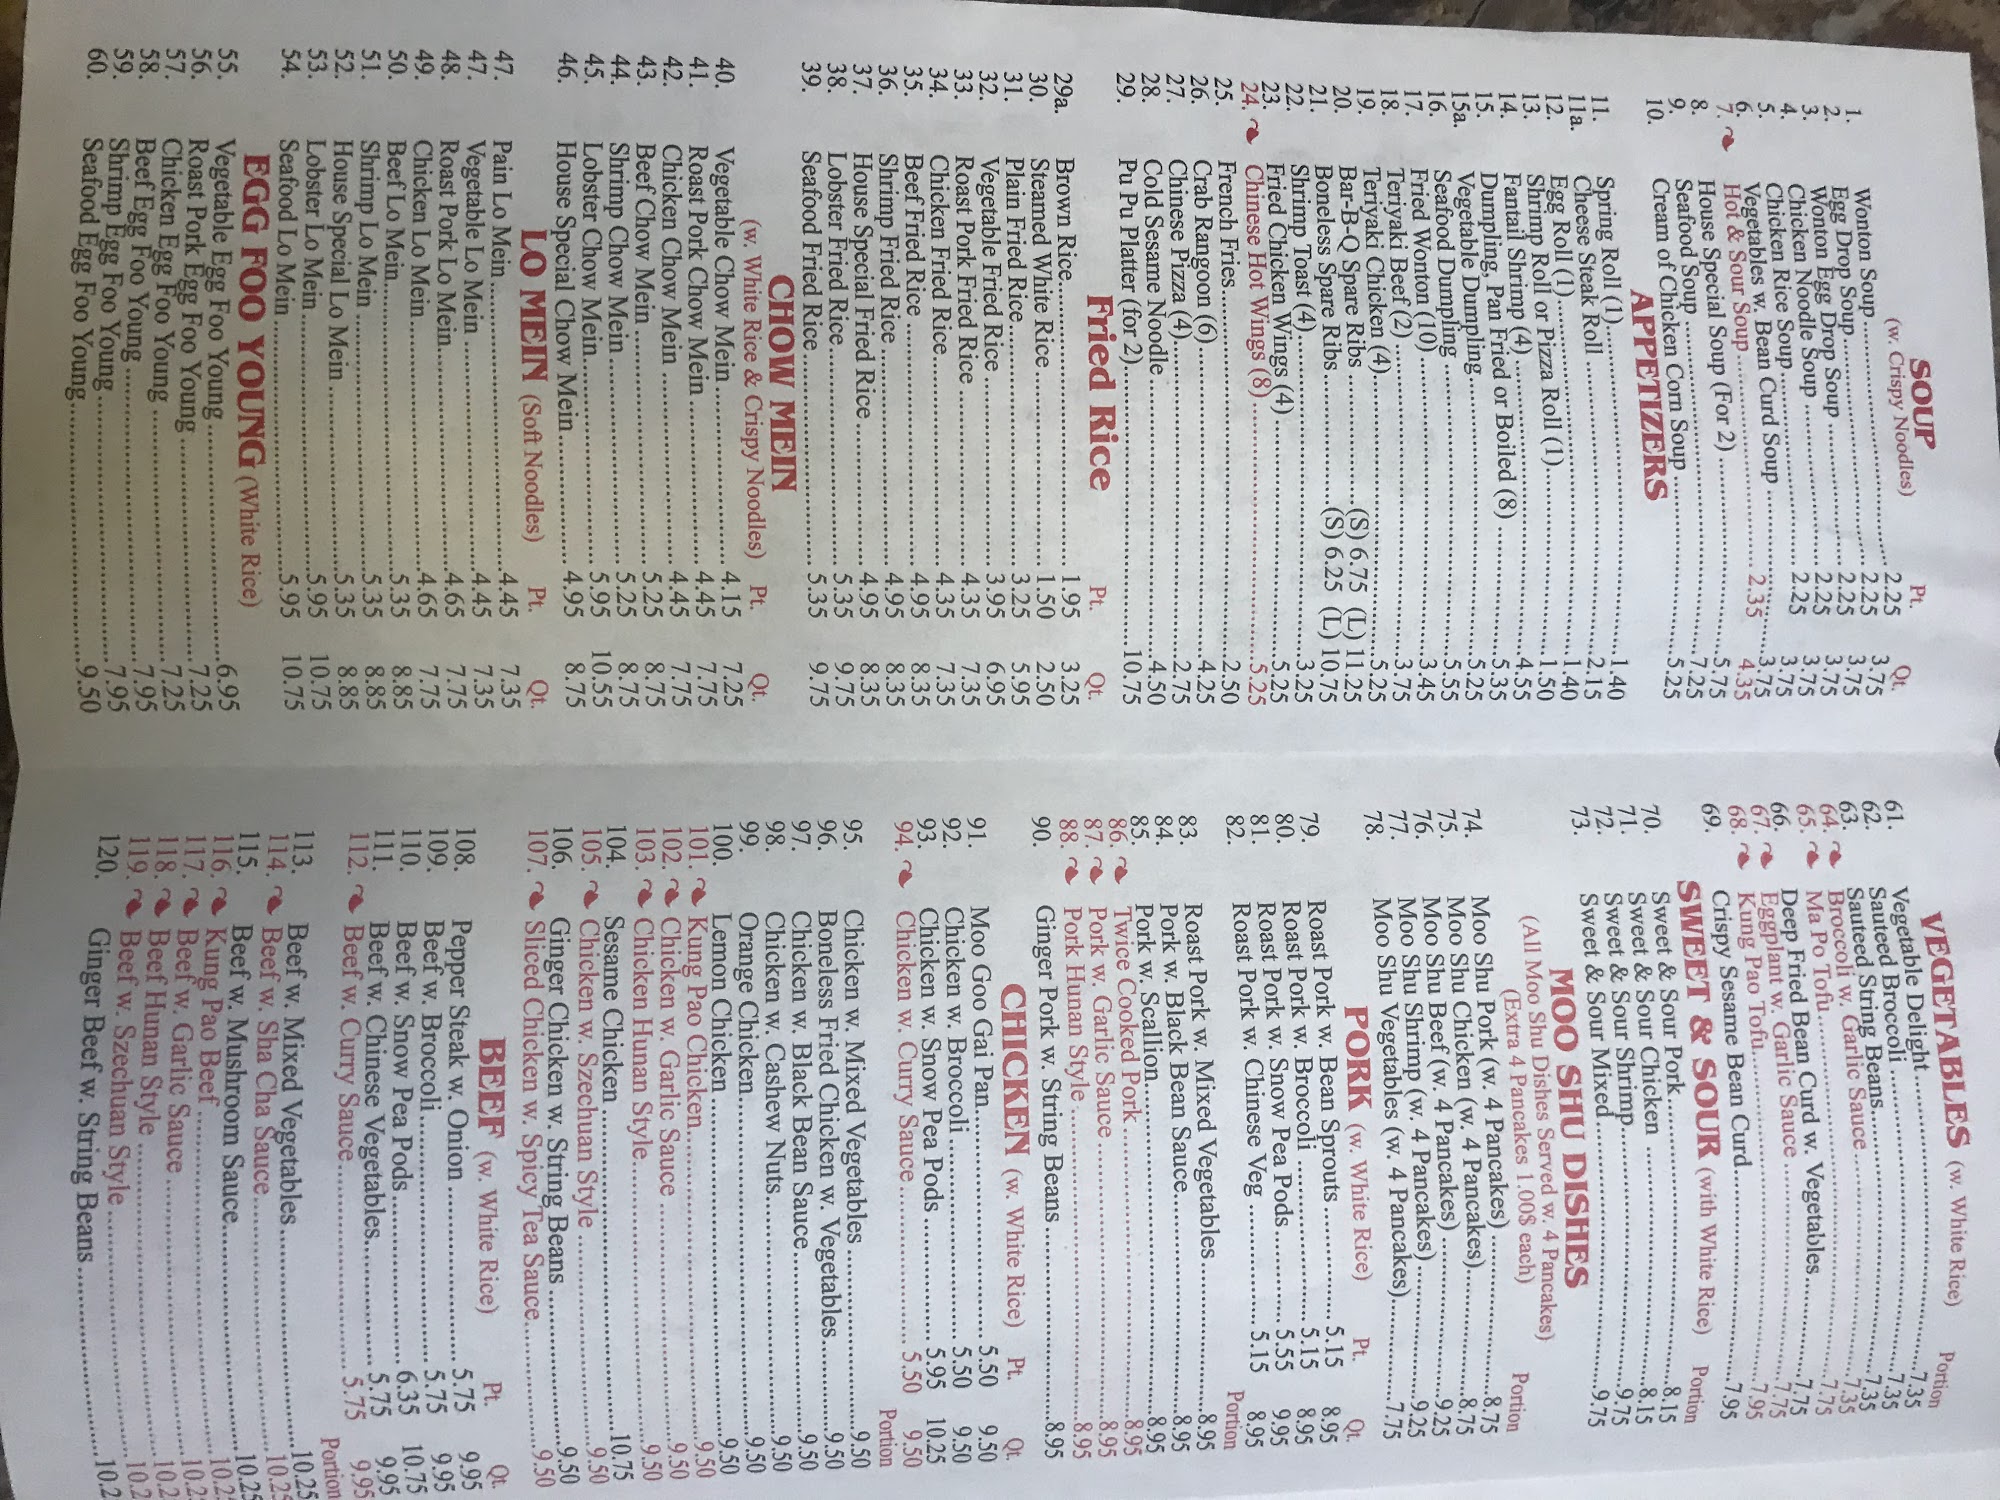 SOUP
(w. Crispy Noodles) Pt. Qt.
1. Wonton Soup 2.25 3.75
2. Egg Drop Soup 2.25 3.75
3. Wonton Egg Drop Soup 2.25 3.75
4. Chicken Noodle Soup 2.25 3.75
5. Chicken Rice Soup 2.25 3.75
6. Vegetables w. Bean Curd Soup 3.75
7. Hot & Sour Soup 2.35 4.35
8. House Special Soup (For 2) 5.75
9. Seafood Soup 7.25
10. Cream of Chicken Corn Soup 5.25
APPETIZERS
11. Spring Roll (1) 1.40
11a. Cheese Steak Roll 2.15
12. Egg Roll (1) 1.40
13. Shrimp Roll or Pizza Roll (1) 1.50
14. Fantail Shrimp (4) 4.55
15. Dumpling, Pan Fried or Boiled (8) 5.35
15a. Vegetable Dumpling 5.25
16. Seafood Dumpling 5.55
17. Fried Wonton (10) 3.45
18. Teriyaki Beef (2) 3.75
19. Teriyaki Chicken (4) 5.25
20. Bar-B-Q Spare Ribs (S) 6.75 (L) 11.25
21. Boneless Spare Ribs (S) 6.25 (L) 10.75
22. Shrimp Toast (4) 3.25
23. Fried Chicken Wings (4) 5.25
24. Chinese Hot Wings (8) 5.25
25. French Fries 2.50
26. Crab Rangoon (6) 4.25
27. Chinese Pizza (4) 2.75
28. Cold Sesame Noodle 4.50
29. Pu Pu Platter (for 2) 10.75
Fried Rice Pt. Qt.
29a. Brown Rice 1.95 3.25
30. Steamed White Rice 1.50 2.50
31. Plain Fried Rice 3.25 5.95
32. Vegetable Fried Rice 3.95 6.95
33. Roast Pork Fried Rice 4.35 7.35
34. Chicken Fried Rice 4.35 7.35
35. Beef Fried Rice 4.95 8.35
36. Shrimp Fried Rice 4.95 8.35
37. House Special Fried Rice 4.95 8.35
38. Lobster Fried Rice 5.35 9.75
39. Seafood Fried Rice 5.35 9.75
CHOW MEIN
(w. White Rice & Crispy Noodles) Pt. Qt.
40. Vegetable Chow Mein 4.15 7.25
41. Roast Pork Chow Mein 4.45 7.75
42. Chicken Chow Mein 4.45 7.75
43. Beef Chow Mein 5.25 8.75
44. Shrimp Chow Mein 5.25 8.75
45. Lobster Chow Mein 5.95 10.55
46. House Special Chow Mein 4.95 8.75
LO MEIN (Soft Noodles) Pt. Qt.
47. Pain Lo Mein 4.45 7.35
47. Vegetable Lo Mein 4.45 7.35
48. Roast Pork Lo Mein 4.65 7.75
49. Chicken Lo Mein 4.65 7.75
50. Beef Lo Mein 5.35 8.85
51. Shrimp Lo Mein 5.35 8.85
52. House Special Lo Mein 5.35 8.85
53. Lobster Lo Mein 5.95 10.75
54. Seafood Lo Mein 5.95 10.75
EGG FOO YOUNG (White Rice)
55. Vegetable Egg Foo Young 6.95
56. Roast Pork Egg Foo Young 7.25
57. Chicken Egg Foo Young 7.25
58. Beef Egg Foo Young 7.95
59. Shrimp Egg Foo Young 7.95
60. Seafood Egg Foo Young 9.50
VEGETABLES (w. White Rice) Portion
61. Vegetable Delight 7.35
62. Sauteed Broccoli 7.35
63. Sauteed String Beans 7.35
64. Broccoli w. Garlic Sauce 7.35
65. Ma Po Tofu 7.75
66. Deep Fried Bean Curd w. Vegetables 7.75
67. Eggplant w. Garlic Sauce 7.75
68. Kung Pao Tofu 7.95
69. Crispy Sesame Bean Curd 7.95
SWEET & SOUR (with White Rice) Portion
70. Sweet & Sour Pork 8.15
71. Sweet & Sour Chicken 8.15
72. Sweet & Sour Shrimp 9.75
73. Sweet & Sour Mixed 9.75
MOO SHU DISHES
(All Moo Shu Dishes Served w. 4 Pancakes)
(Extra 4 Pancakes 1.00$ each) Portion
74. Moo Shu Pork (w. 4 Pancakes) 8.75
75. Moo Shu Chicken (w. 4 Pancakes) 8.75
76. Moo Shu Beef (w. 4 Pancakes) 9.25
77. Moo Shu Shrimp (w. 4 Pancakes) 9.25
78. Moo Shu Vegetables (w. 4 Pancakes) 7.75
PORK (w. White Rice) Pt. Qt.
79. Roast Pork w. Bean Sprouts 5.15 8.95
80. Roast Pork w. Broccoli 5.15 8.95
81. Roast Pork w. Snow Pea Pods 5.55 9.95
82. Roast Pork w. Chinese Veg 5.15 8.95
Portion
83. Roast Pork w. Mixed Vegetables 8.95
84. Pork w. Black Bean Sauce 8.95
85. Pork w. Scallion 8.95
86. Twice Cooked Pork 8.95
87. Pork w. Garlic Sauce 8.95
88. Pork Hunan Style 8.95
90. Ginger Pork w. String Beans 8.95
CHICKEN (w. White Rice) Pt. Qt.
91. Moo Goo Gai Pan 5.50 9.50
92. Chicken w. Broccoli 5.50 9.50
93. Chicken w. Snow Pea Pods 5.95 10.25
94. Chicken w. Curry Sauce 5.50 9.50
Portion
95. Chicken w. Mixed Vegetables 9.50
96. Boneless Fried Chicken w. Vegetables 9.50
97. Chicken w. Black Bean Sauce 9.50
98. Chicken w. Cashew Nuts 9.50
99. Orange Chicken 9.50
100. Lemon Chicken 9.50
101. Kung Pao Chicken 9.50
102. Chicken w. Garlic Sauce 9.50
103. Chicken Hunan Style 9.50
104. Sesame Chicken 10.75
105. Chicken w. Szechuan Style 9.50
106. Ginger Chicken w. String Beans 9.50
107. Sliced Chicken w. Spicy Tea Sauce 9.50
BEEF (w. White Rice) Pt Qt.
108. Pepper Steak w. Onion 5.75 9.95
109. Beef w. Broccoli 5.75 9.95
110. Beef w. Snow Pea Pods 6.35 10.75
111. Beef w. Chinese Vegetables 5.75 9.95
112. Beef w. Curry Sauce 5.75 9.95
Portion
113. Beef w. Mixed Vegetables 10.25
114. Beef w. Sha Cha Sauce 10.25
115. Beef w. Mushroom Sauce 10.25
116. Kung Pao Beef 10.2
117. Beef w. Garlic Sauce 10.2
118. Beef Hunan Style 10.2
119. Beef w. Szechuan Style 10.2
120. Ginger Beef w. String Beans 10.2